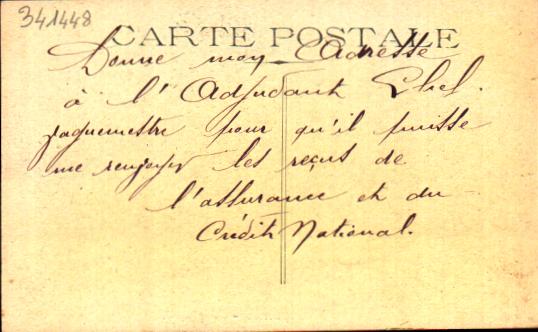 341448
CARTE POSTALE
Donne mon Adresse
à l'Adjudant
Vaguemestre pour qu'il puisse
me renvoyer les reçus de
l'assurance et du
Crédit National.